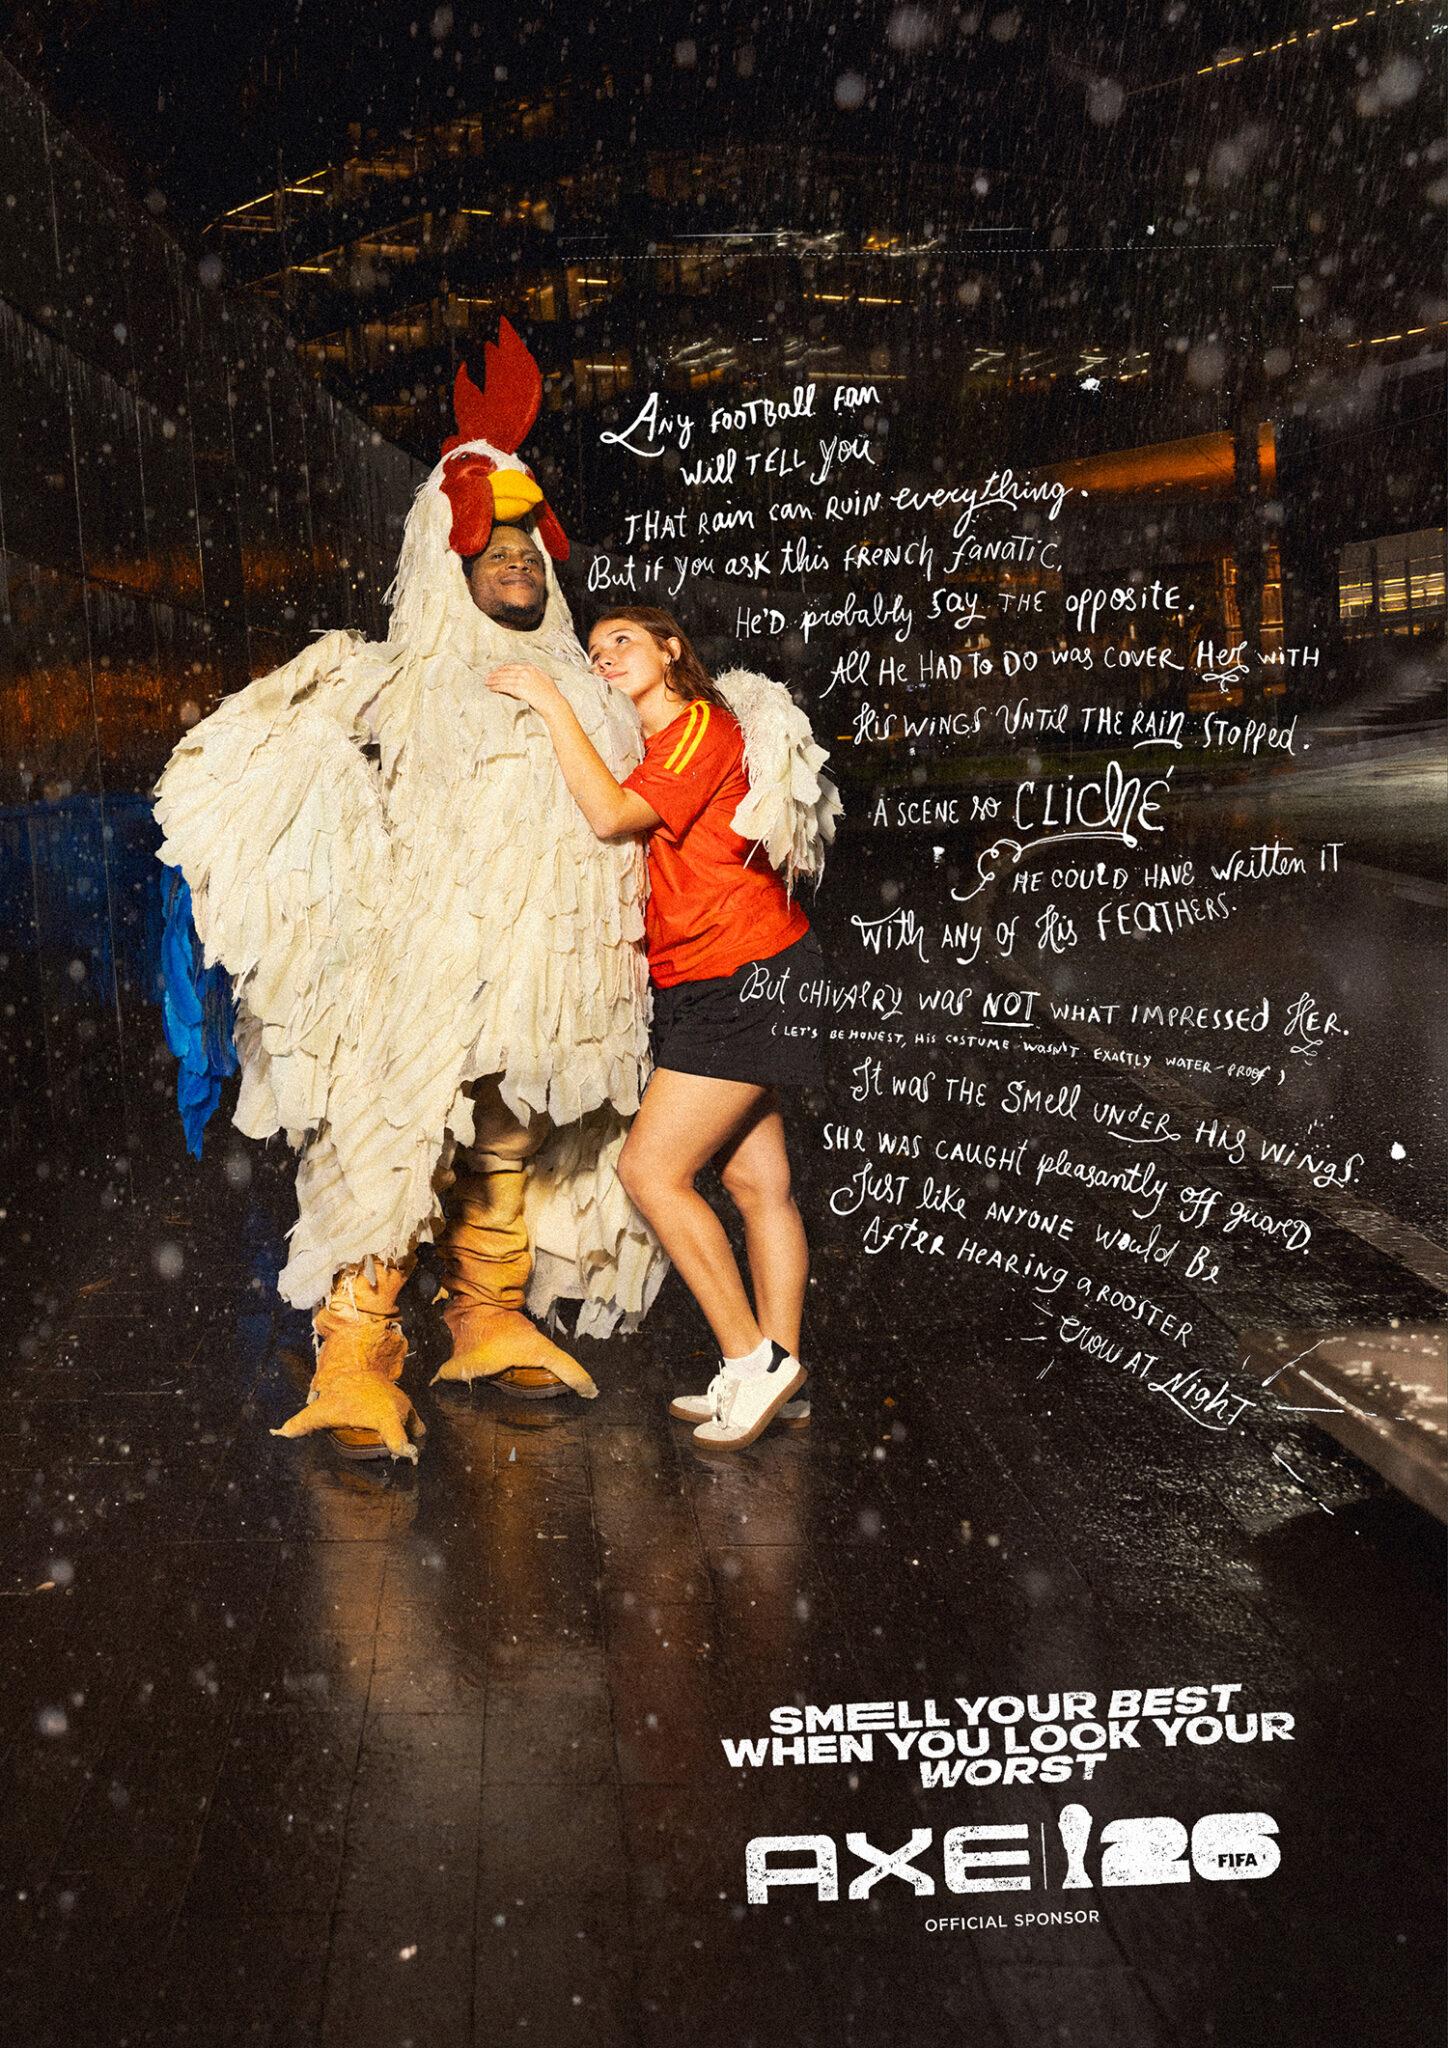 Any football fan
will tell you
that rain can ruin everything.
But if you ask this French fanatic,
he'd probably say the opposite.
All he had to do was cover her with
his wings until the rain stopped.
A scene so cliché
he could have written it
with any of his feathers.
But chivalry was NOT what impressed her.
(Let's be honest, his costume wasn't exactly water-proof)
It was the smell under his wings.
She was caught pleasantly off guard.
Just like anyone would be
after hearing a rooster
crow at night.
SMELL YOUR BEST
WHEN YOU LOOK YOUR
WORST
AXE | 26
FIFA
OFFICIAL SPONSOR